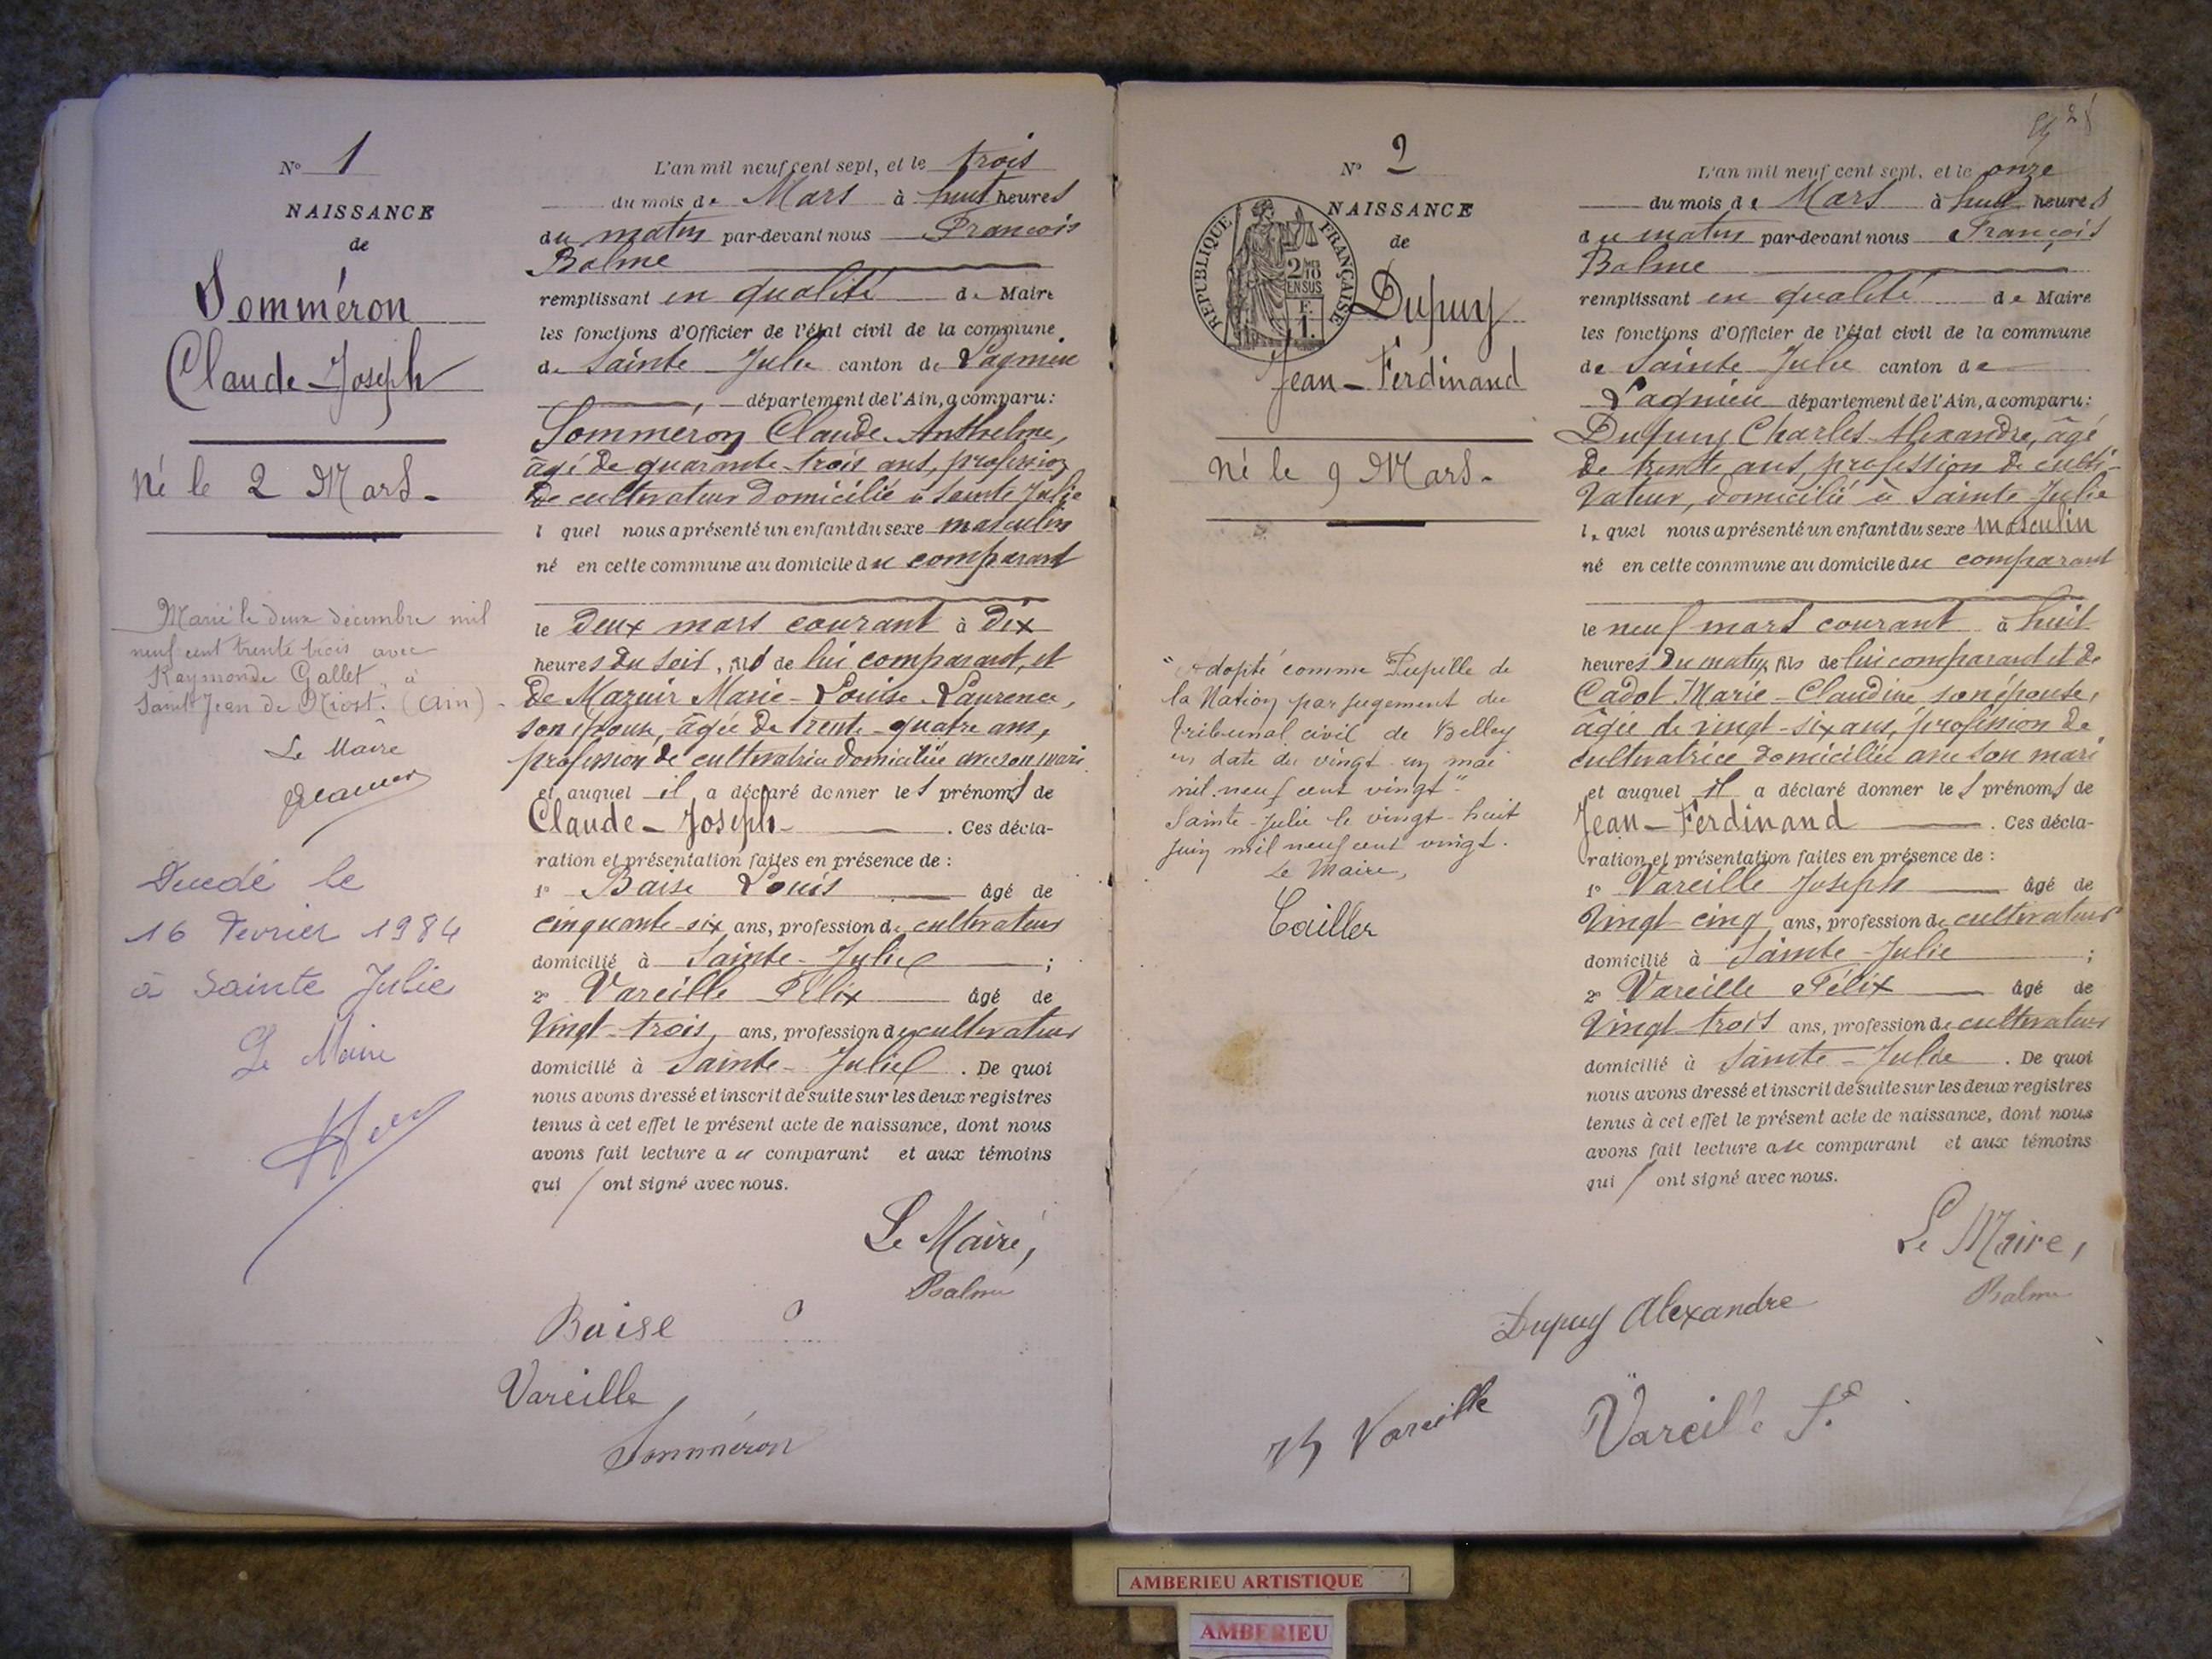 N° 1
NAISSANCE
de
Somméron
Claude-Joseph
Né le 2 Mars.
Marié le deux décembre mil
neuf cent trente trois avec
Raymonde Gallet à
Saint Jean de Niost. (Ain)
Le Maire
Décédé le
16 Février 1984
à Sainte Julie
Le Maire
L'an mil neuf cent sept, et le trois
du mois de Mars à huit heures
du matin par-devant nous François
Balme
remplissant en qualité de Maire
les fonctions d'Officier de l'état civil de la commune
de Sainte Julie canton de Lagnieu
, département de l'Ain, a comparu:
Sommeron Claude Anthelme,
âgé de quarante-trois ans, profession
de cultivateur domicilié à Sainte Julie
l quel nous a présenté un enfant du sexe masculin
né en cette commune au domicile du comparant
le deux mars courant à dix
heures du soir, fils de lui comparant, et
de Mazuir Marie-Louise Laurence,
son épouse, âgée de trente-quatre ans,
profession de cultivatrice domiciliée avec son mari
et auquel il a déclaré donner les prénoms de
Claude-Joseph. Ces décla-
ration et présentation faites en présence de :
1° Baise Louis âgé de
cinquante-six ans, profession de cultivateur
domicilié à Sainte-Julie ;
2° Vareille Félix âgé de
Vingt-trois ans, profession de cultivateur
domicilié à Sainte-Julie. De quoi
nous avons dressé et inscrit de suite sur les deux registres
tenus à cet effet le présent acte de naissance, dont nous
avons fait lecture au comparant et aux témoins
qui ont signé avec nous.
Le Maire,
Balme
Baise
Vareille
Somméron
N° 2
NAISSANCE
de
REPUBLIQUE FRANÇAISE
2/10 EN SUS
F.
1.
Dupuy
Jean-Ferdinand
Né le 9 Mars.
"Adopté comme Pupille de
la Nation par jugement du
tribunal civil de Belley
en date du vingt-un mai
mil neuf cent vingt"
Sainte-Julie le vingt-huit
juin mil neuf cent vingt.
Le Maire,
L'an mil neuf cent sept, et le onze
du mois de Mars à huit heures
du matin par-devant nous François
Balme
remplissant en qualité de Maire
les fonctions d'Officier de l'état civil de la commune
de Sainte-Julie canton de
Lagnieu département de l'Ain, a comparu:
Dupuy Charles-Alexandre, âgé
de trente ans, profession de culti-
vateur, domicilié à Sainte Julie
le quel nous a présenté un enfant du sexe masculin
né en cette commune au domicile du comparant
le neuf mars courant à huit
heures du matin, fils de lui comparant et de
Cadot Marie-Claudine son épouse,
âgée de vingt-six ans, profession de
cultivatrice domiciliée avec son mari
et auquel il a déclaré donner les prénoms de
Jean-Ferdinand. Ces décla-
ration et présentation faites en présence de :
1° Vareille Joseph âgé de
Vingt-cinq ans, profession de cultivateur
domicilié à Sainte-Julie ;
2° Vareille Félix âgé de
Vingt-trois ans, profession de cultivateur
domicilié à Sainte-Julie. De quoi
nous avons dressé et inscrit de suite sur les deux registres
tenus à cet effet le présent acte de naissance, dont nous
avons fait lecture au comparant et aux témoins
qui ont signé avec nous.
Le Maire,
Balme
Dupuy Alexandre
Vareille
Vareille
AMBERIEU ARTISTIQUE
AMBERIEU